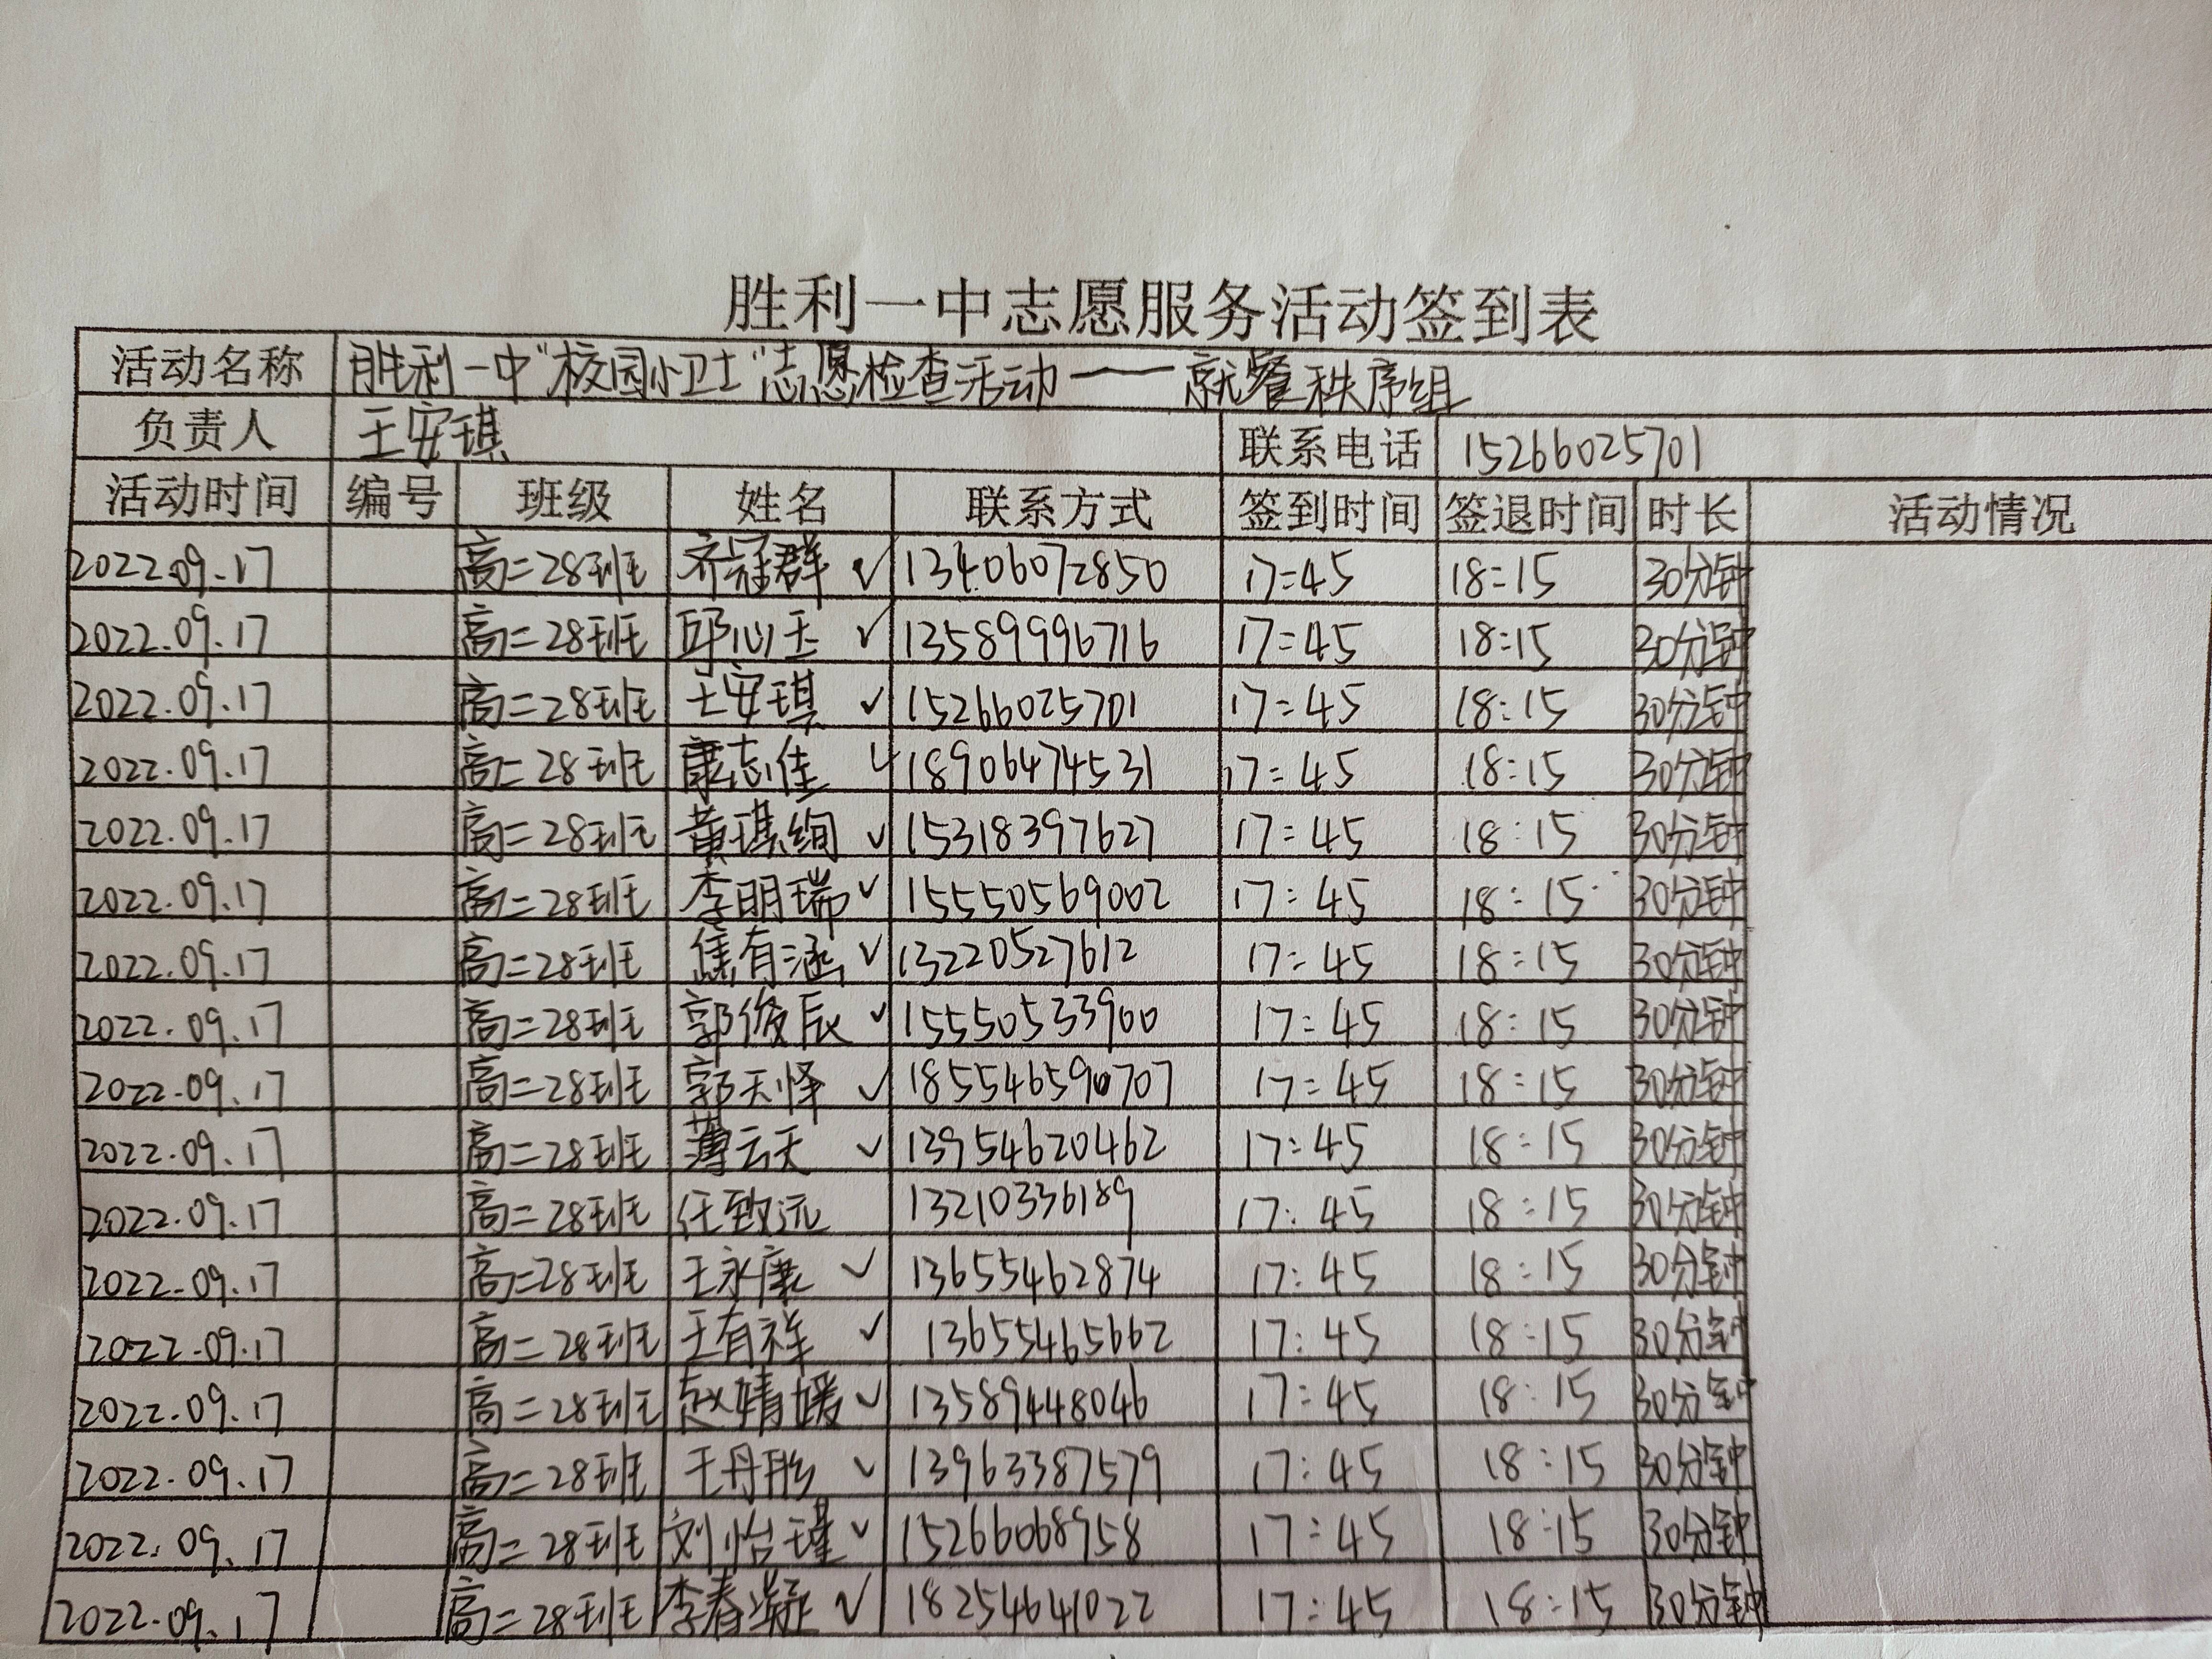 胜利一中志愿服务活动签到表
活动名称 胜利一中“校园小卫士”志愿检查活动——就餐秩序组
负责人 王安琪 联系电话 15266025701
活动时间 编号 班级 姓名 联系方式 签到时间 签退时间 时长 活动情况
2022.09.17 高二28班 齐冠群 ✓ 13406072850 17:45 18:15 30分钟
2022.09.17 高二28班 邱心玉 ✓ 13589996716 17:45 18:15 30分钟
2022.09.17 高二28班 王安琪 ✓ 15266025701 17:45 18:15 30分钟
2022.09.17 高二28班 康志佳 ✓ 18906474531 17:45 18:15 30分钟
2022.09.17 高二28班 黄琪绚 ✓ 15318397627 17:45 18:15 30分钟
2022.09.17 高二28班 李明瑞 ✓ 15550569002 17:45 18:15 30分钟
2022.09.17 高二28班 焦有涵 ✓ 13220527612 17:45 18:15 30分钟
2022.09.17 高二28班 郭俊辰 ✓ 15550533900 17:45 18:15 30分钟
2022.09.17 高二28班 郭天怿 ✓ 185546590707 17:45 18:15 30分钟
2022.09.17 高二28班 薄云天 ✓ 13954620462 17:45 18:15 30分钟
2022.09.17 高二28班 任致远 13210336189 17:45 18:15 30分钟
2022.09.17 高二28班 王永康 ✓ 13655462874 17:45 18:15 30分钟
2022.09.17 高二28班 王有祥 ✓ 13655465662 17:45 18:15 30分钟
2022.09.17 高二28班 赵婧媛 ✓ 13589448046 17:45 18:15 30分钟
2022.09.17 高二28班 王丹彤 ✓ 13963387579 17:45 18:15 30分钟
2022.09.17 高二28班 刘怡瑾 ✓ 15266068958 17:45 18:15 30分钟
2022.09.17 高二28班 李春凝 ✓ 18254641022 17:45 18:15 30分钟